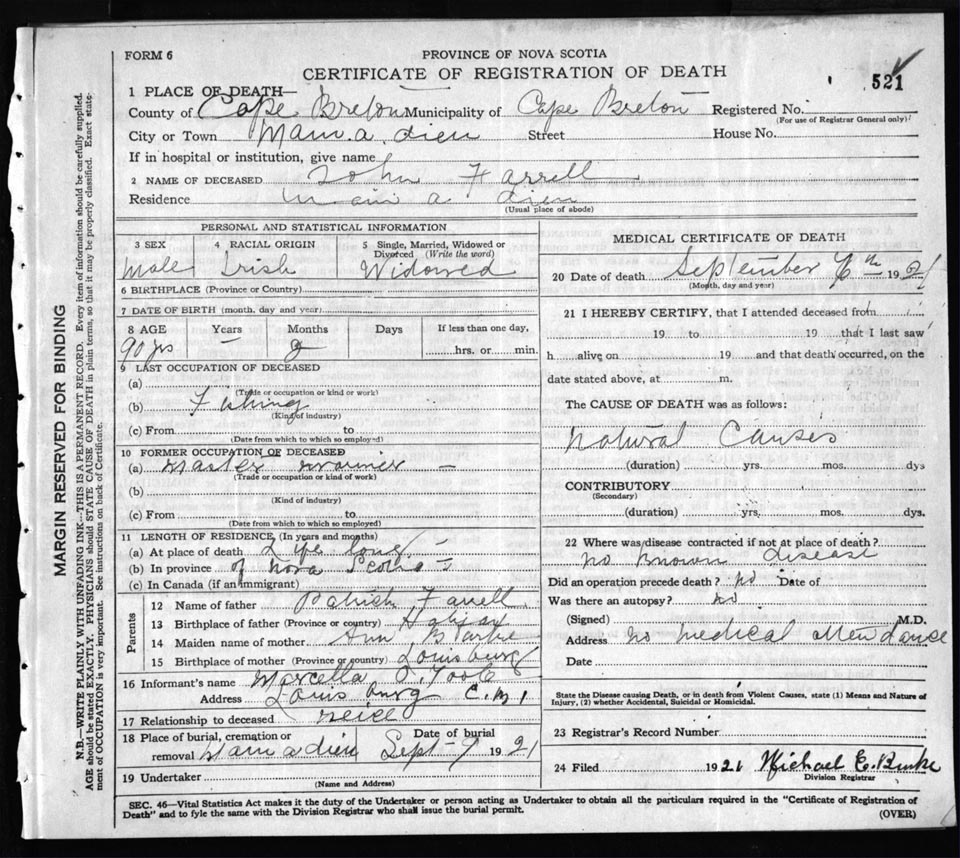 FORM 6
PROVINCE OF NOVA SCOTIA
CERTIFICATE OF REGISTRATION OF DEATH
521
1 PLACE OF DEATH—
County of Cape Breton Municipality of Cape Breton Registered No.
(For use of Registrar General only)
City or Town Main.a.dieu Street House No.
If in hospital or institution, give name
2 NAME OF DECEASED John Farrell
Residence Main a dieu
(Usual place of abode)
PERSONAL AND STATISTICAL INFORMATION
3 SEX 4 RACIAL ORIGIN 5 Single, Married, Widowed or Divorced (Write the word)
Male Irish Widowed
6 BIRTHPLACE (Province or Country)
7 DATE OF BIRTH (month, day and year)
8 AGE Years Months Days If less than one day,
90 yrs — hrs. or min.
9 LAST OCCUPATION OF DECEASED
(a)
(Trade or occupation or kind or work)
(b) Fishing
(Kind of industry)
(c) From to
(Date from which to which so employed)
10 FORMER OCCUPATION OF DECEASED
(a) Master Mariner —
(Trade or occupation or kind of work)
(b)
(Kind of industry)
(c) From to
(Date from which to which so employed)
11 LENGTH OF RESIDENCE (In years and months)
(a) At place of death Life long
(b) In province of Nova Scotia
(c) In Canada (if an immigrant)
Parents
12 Name of father Patrick Farrell
13 Birthplace of father (Province or country) Halifax
14 Maiden name of mother Ann
15 Birthplace of mother (Province or country) Louisburg
16 Informant's name Marcella O.Toole
Address Louisburg C.B.
17 Relationship to deceased neice
18 Place of burial, cremation or removal Mainadieu Date of burial Sept - 9 1921
19 Undertaker
(Name and Address)
MEDICAL CERTIFICATE OF DEATH
20 Date of death September 6th 1921
(Month, day and year)
21 I HEREBY CERTIFY, that I attended deceased from
19 to 19 that I last saw
h alive on 19 and that death occurred, on the
date stated above, at m.
The CAUSE OF DEATH was as follows:
Natural Causes
(duration) yrs. mos. dys
CONTRIBUTORY
(Secondary)
(duration) yrs. mos. dys.
22 Where was disease contracted if not at place of death?
no known disease
Did an operation precede death? no Date of
Was there an autopsy? no
(Signed) M.D.
Address no medical attendance
Date
State the Disease causing Death, or in death from Violent Causes, state (1) Means and Nature of
Injury, (2) whether Accidental, Suicidal or Homicidal.
23 Registrar's Record Number
24 Filed 1921 Michael E. Burke
Division Registrar
SEC. 46—Vital Statistics Act makes it the duty of the Undertaker or person acting as Undertaker to obtain all the particulars required in the "Certificate of Registration of
Death" and to fyle the same with the Division Registrar who shall issue the burial permit.
(OVER)
MARGIN RESERVED FOR BINDING
N.B.—WRITE PLAINLY WITH UNFADING INK—THIS IS A PERMANENT RECORD. Every item of information should be carefully supplied.
AGE should be stated EXACTLY. PHYSICIANS should STATE CAUSE OF DEATH in plain terms, so that it may be properly classified. Exact state-
ment of OCCUPATION is very important. See instructions on back of Certificate.